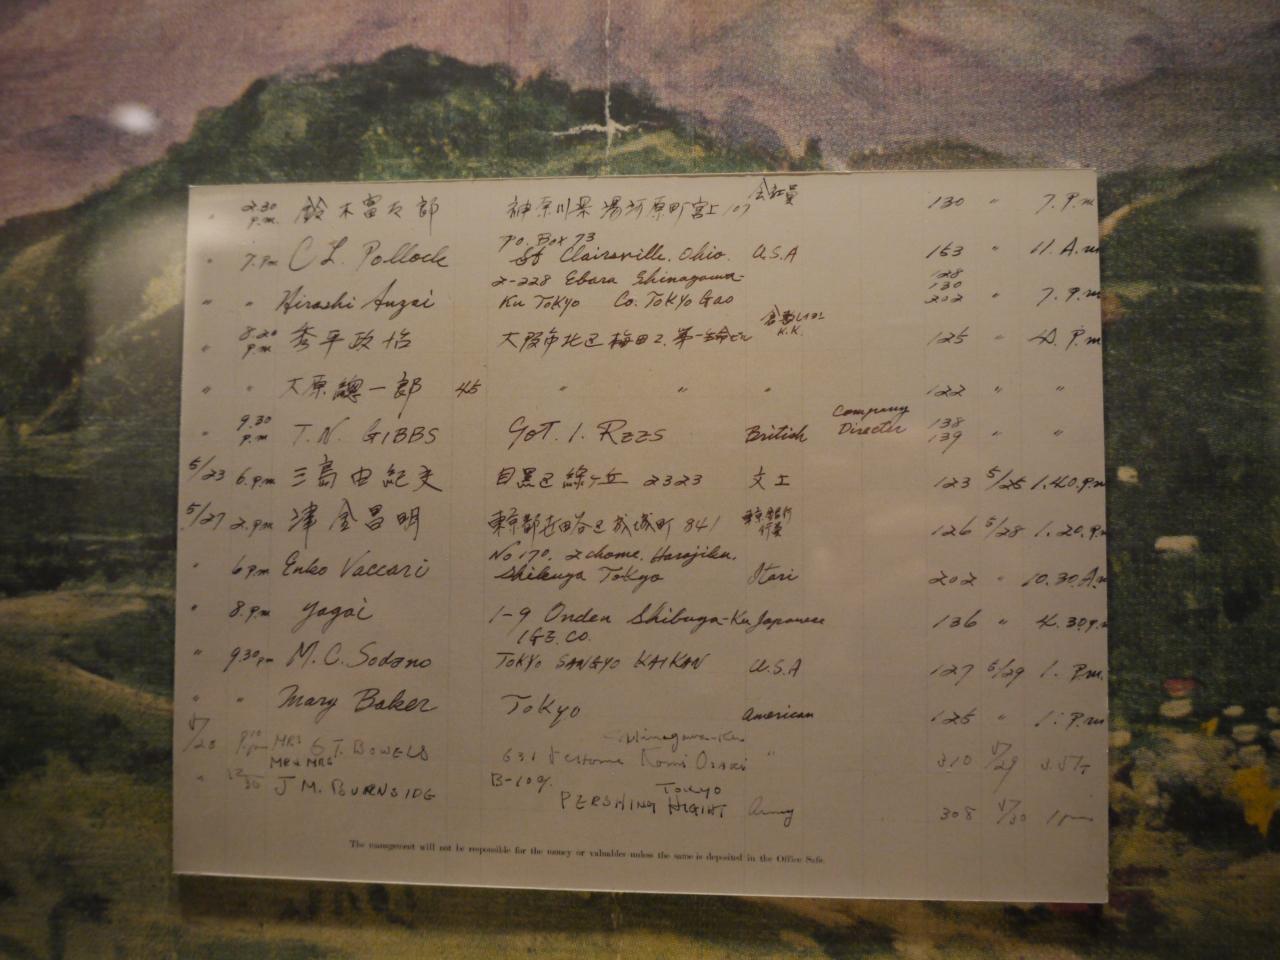 " 2.30 P.m. 鈴木富太郎 神奈川県湯河原町宮上107 会社員 130 " 7. P.m
" 7. P.m C L. Pollock P.O. Box 73 St Clairsville, Ohio. U.S.A 153 " 11. A.m
" " Hiroshi Anzai 2-228 Ebara Shinagawa-Ku Tokyo Co. Tokyo Gas 128 130 202 " 7. P.m
" 8.20 P.m 秀平政治 大阪市北区梅田2. 第一 K.K. 125 " 4. P.m
" " 大原總一郎 45 " " " 122 " "
" 9.30 P.m T. N. GIBBS British Company Director 138 139 " "
5/23 6. P.m 三島由紀夫 目黒区緑ヶ丘 2323 文士 123 5/25 1.40. P.m
5/27 2. P.m 津金昌明 東京都世田谷区成城町 841 東京銀行行員 126 5/28 1.20. P.m
" 6 P.m Vaccari No 170. 2 chome. Harajiku. Shibuya Tokyo Itari 202 " 10.30. A.m
" 8. P.m Yagai 1-9 Onden Shibuya-Ku Japanese 136 " 4.30 P.m
IGE. CO.
" 9.30 Pm M. C. Sodano TOKYO SANGYO KAIKAN U.S.A 127 5/29 1. P.m.
" " Mary Baker Tokyo American 125 " 1. P.m
MRS G T. BOWELS Shinagawa-Ku 631 Osaki " 310
MR & MRS J M. BURNSIDE B-109. Tokyo PERSHING HEIGHT Army 308
The management will not be responsible for the money or valuables unless the same is deposited in the Office Safe.